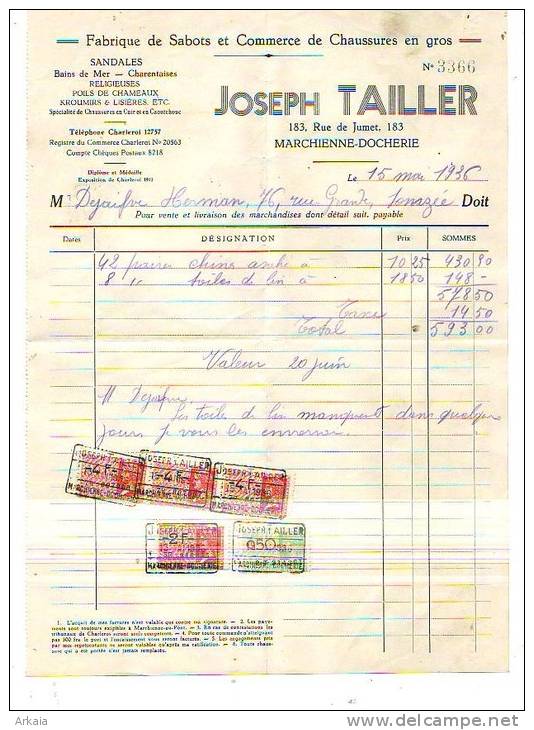 Fabrique de Sabots et Commerce de Chaussures en gros
SANDALES
Bains de Mer — Charentaises
RELIGIEUSES
POILS DE CHAMEAUX
KROUMIRS & LISIÈRES, ETC.
Spécialité de Chaussures en Cuir et en Caoutchouc
Téléphone Charleroi 12757
Registre du Commerce Charleroi No 20563
Compte Chèques Postaux 8218
Diplôme et Médaille
Exposition de Charleroi 1911
No 3366
JOSEPH TAILLER
183, Rue de Jumet, 183
MARCHIENNE-DOCHERIE
Le 15 mai 1936
M Dejaifve Herman, 76, rue Grande, Doit
Pour vente et livraison des marchandises dont détail suit, payable
Dates DÉSIGNATION Prix SOMMES
42 paires chine à 10 25 430 90
8 " toiles de lin à 18 50 148 -
578 50
Taxe 14 50
Total 593 00
Valeur 20 juin
M Dejaifve
Les toiles de lin manquent dans quelques
jours je vous les enverrai
JOSEPH TAILLER
4F
MARCHIENNE-DOCHERIE
JOSEPH TAILLER
4F
MARCHIENNE-DOCHERIE
JOSEPH TAILLER
4F
MARCHIENNE-DOCHERIE
JOSEPH TAILLER
2F
MARCHIENNE-DOCHERIE
JOSEPH TAILLER
0,50
MARCHIENNE-DOCHERIE
1. L'acquit de mes factures n'est valable que contre ma signature. — 2. Les paye-
ments sont toujours exigibles à Marchienne-au-Pont. — 3. En cas de contestations les
tribunaux de Charleroi seront seuls compétents. — 4. Pour toute commande n'atteignant
pas 300 frs le port et l'encaissement vous seront facturés. — 5. Les engagements pris
par mes représentants ne seront valables qu'après ma ratification. — 6. Toute chaus-
sure qui a été portée n'est jamais remplacée.
Arkaia
www.delcampe.net